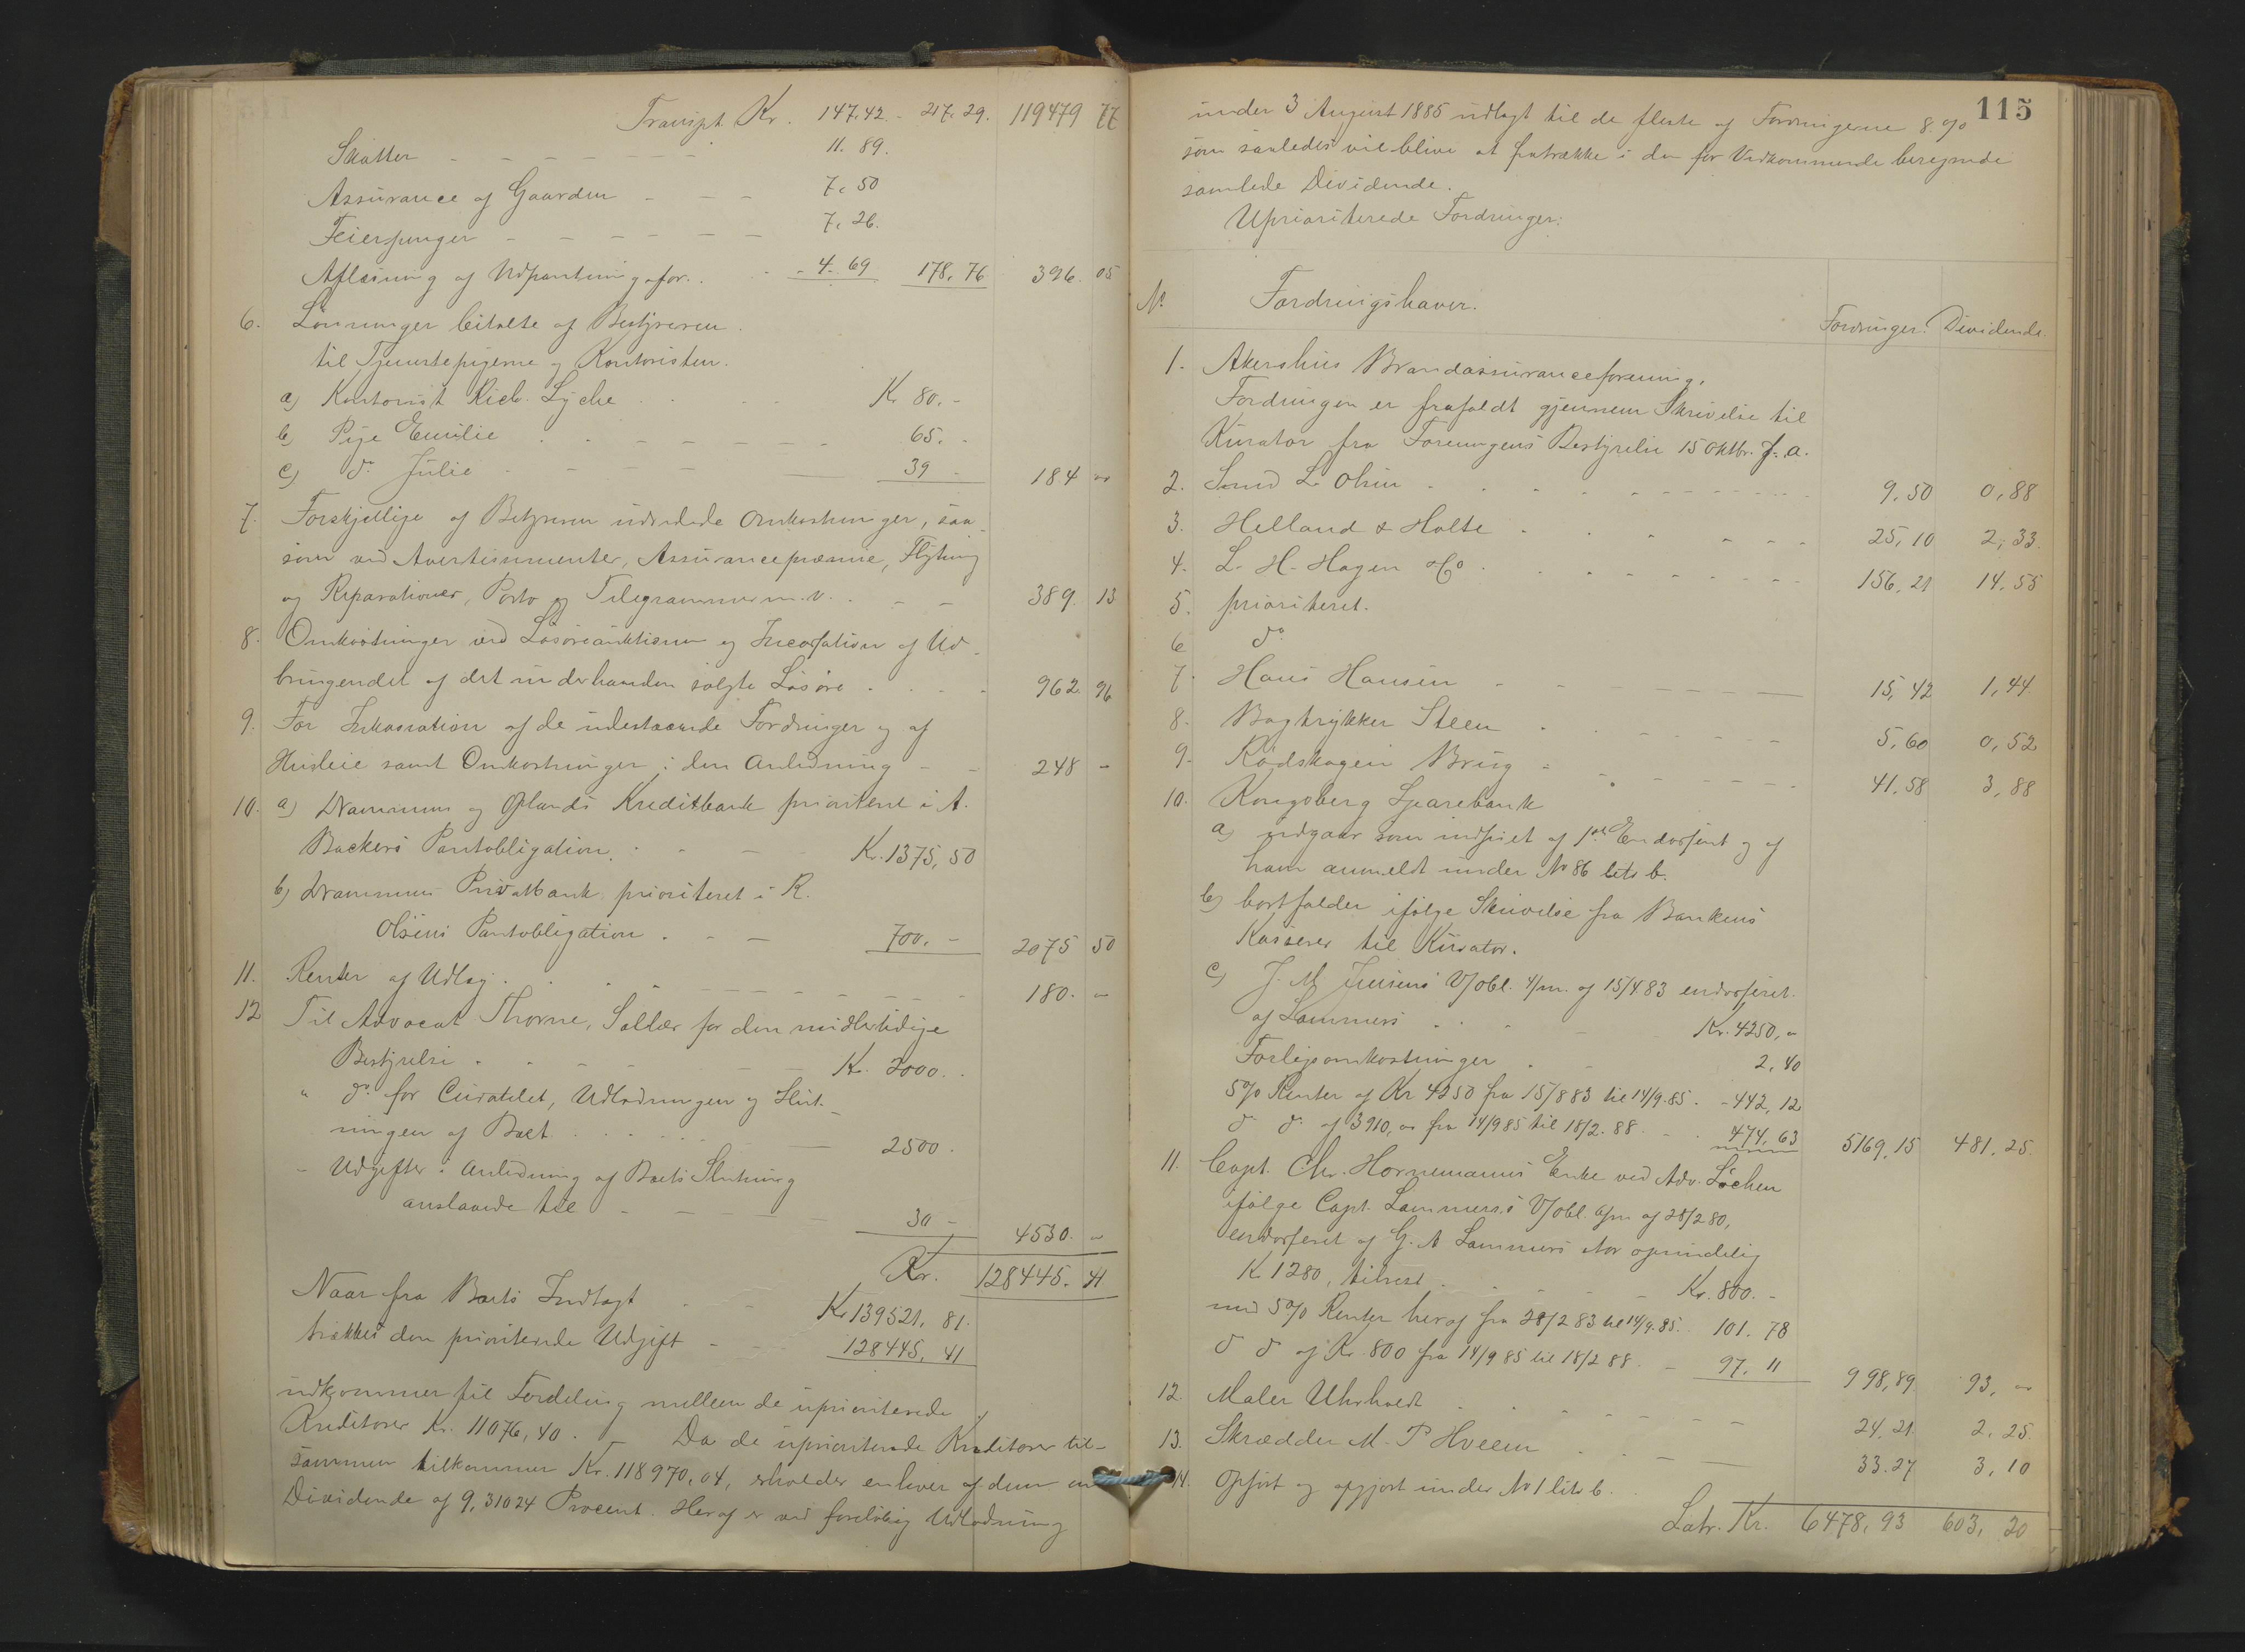 Transpt. Kr. 147,42. - 217,29. 119479 77
Skatter 11. 89.
Assurance af Gaarden 7,50
Feierpenger 7,26.
Afløsning af Udpantningsfor. 4. 69 178,76 396. 05
6. Lønninger betalte af Bestyreren
til Tjenestepigerne og Kontoristen.
a) Kontorist Rich. Lyche Kr 80. -
b) Pige Emilie 65. -
c) do Julie 39 - 184 "
7. Forskjellige af Bestyreren udredede Omkostninger, saa-
som ved Avertissementer, Assurancepræmie, Flytning
og Reparationer, Porto og Telegrammer m.v. 389. 13
8. Omkostninger ved Løsøreauktionen og Incassation af Ud-
bringendet af det underhaanden solgte Løsøre 962. 96
9. For Inkassation af de udestaaende Fordringer og af
Husleie samt Omkostninger i den Anledning 248 -
10. a) Drammens og Oplands Kreditbank prioriteret i A.
Backers Pantobligation. Kr. 1375,50
b) Drammens Privatbank prioriteret i R.
Olsens Pantobligation 700. - 2075 50
11. Renter af Udlæg. 180. -
12 Til Advocat Thorne, Sallær for den midlertidige
Bestyrelse Kr. 2000.
" do for Curatelet, Udlodningen og Slut-
ningen af Boet 2500.
- Udgifter i Anledning af Boets Slutning
anslaaede til 30 - 4530. -
Kr. 128445. 41
Naar fra Boets Indtægt Kr 139521, 81.
trækkes den prioriterede Udgift 128445, 41
udkommer til Fordeling mellem de uprioriterede
Kreditorer Kr. 11076,40. Da de uprioriterede Kreditorer til-
sammen tilkommer Kr. 118970,04, erholder enhver af dem en
Dividende af 9,31024 Procent. Heraf er ved foreløbig Udlodning
115
under 3 August 1885 udlagt til de fleste af Fordringerne 8 %
som saaledes vil blive at fratrække i den for Vedkommende beregnede
samlede Dividende.
Uprioriterede Fordringer:
No Fordringshaver. Fordringer. Dividende.
1. Akershus Brandassuranceforening,
Fordringen er frafaldt gjennem Skrivelse til
Kurator fra Foreningens Bestyrelse 15 Oktbr. f. a.
2. Smed L. Olsen 9,50 0,88
3. Helland & Holte 25,10 2,33.
4. L. H. Hagen & Co 156,21 14,55
5. prioriteret.
6 do
7. Hans Hansen 15,42 1,44
8. Bogtrykker Steen 5,60 0,52
9. Rødskogen Brug 41,58 3,88
10. Kongsberg Sparebank
a) udgaar som indfriet af 1ste Endossent og af
ham anmeldt under No 86 litr b.
b) bortfalder ifølge Skrivelse fra Bankens
Kasserer til Kurator.
c) J. M. Jensens V/obl. 4/m. af 15/4 83 endosseret.
af Lammers Kr. 4250, "
Forligsomkostninger 2,40
5 % Renter af Kr 4250 fra 15/8 83 til 14/9. 85. - 442,12
do do af 3910, " fra 14/9 85 til 18/2. 88 - 474,63 5169,15 481,25.
11. Capt. Chr. Hornemanns Enke ved Adv. Løchen
ifølge Capt. Lammers's V/obl. 6/m af 28/2 80,
endosseret af G. A Lammers stor oprindelig
Kr 1280, tilrest Kr. 800. -
med 5 % Renter heraf fra 28/2 83 til 14/9. 85. 101. 78
do do af Kr. 800 fra 14/9 85 til 18/2 88. - 97. 11 998,89 93, "
12. Maler Uhrholdt 24,21 2,25.
13. Skrædder M. P Hveem 33.27 3,10
14. Opført og opgjort under No 1 litr b.
Latr. Kr. 6478,93 603,20